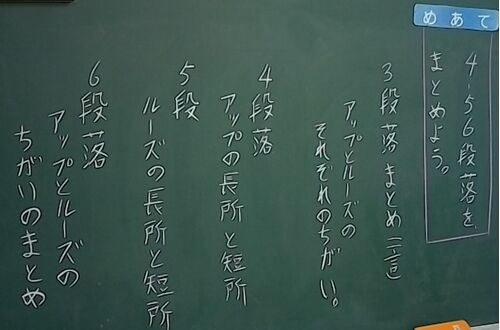 めあて
4.5 6段落を
まとめよう。
3段落 まとめ 一言
アップとルーズの
それぞれのちがい。
4段落
アップの長所と短所
5段
ルーズの長所と短所
6段落
アップとルーズの
ちがいのまとめ